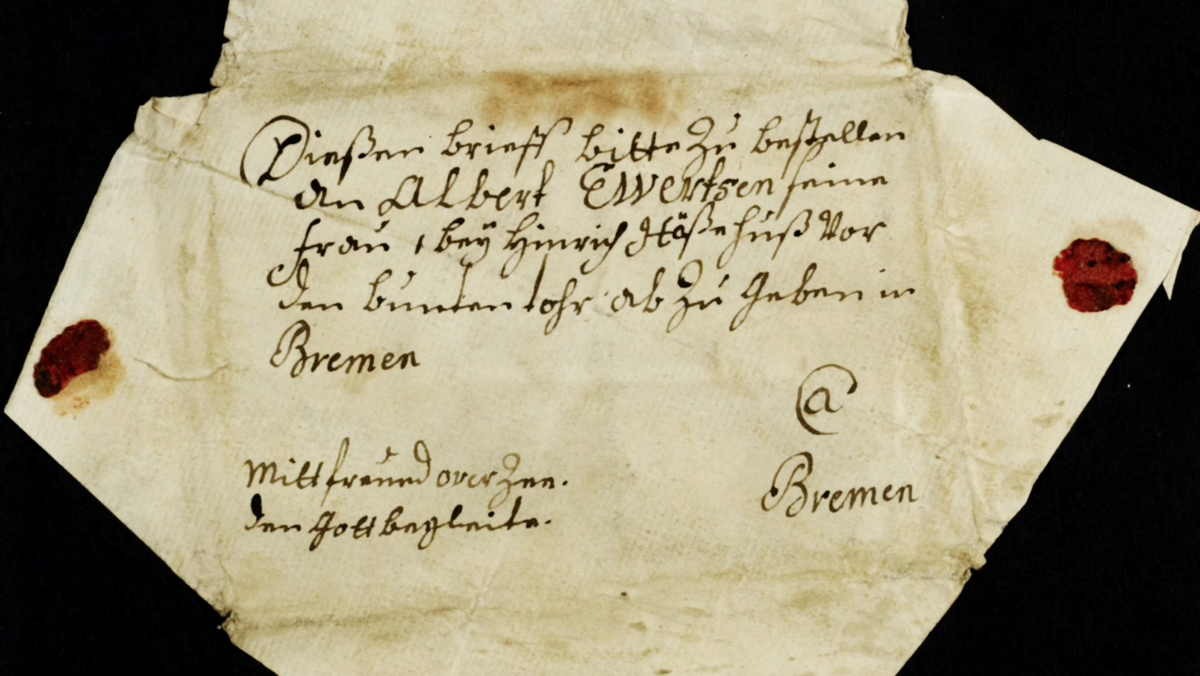 Dießen brieff bitte zu bestellen
an Albert Ewertsen seine
frau, beÿ Hinrich Hößehuß Vor
den bunten tohr ab zu geben in
Bremen
@
Mitt freund over Zee.
den Gott begleite.
Bremen